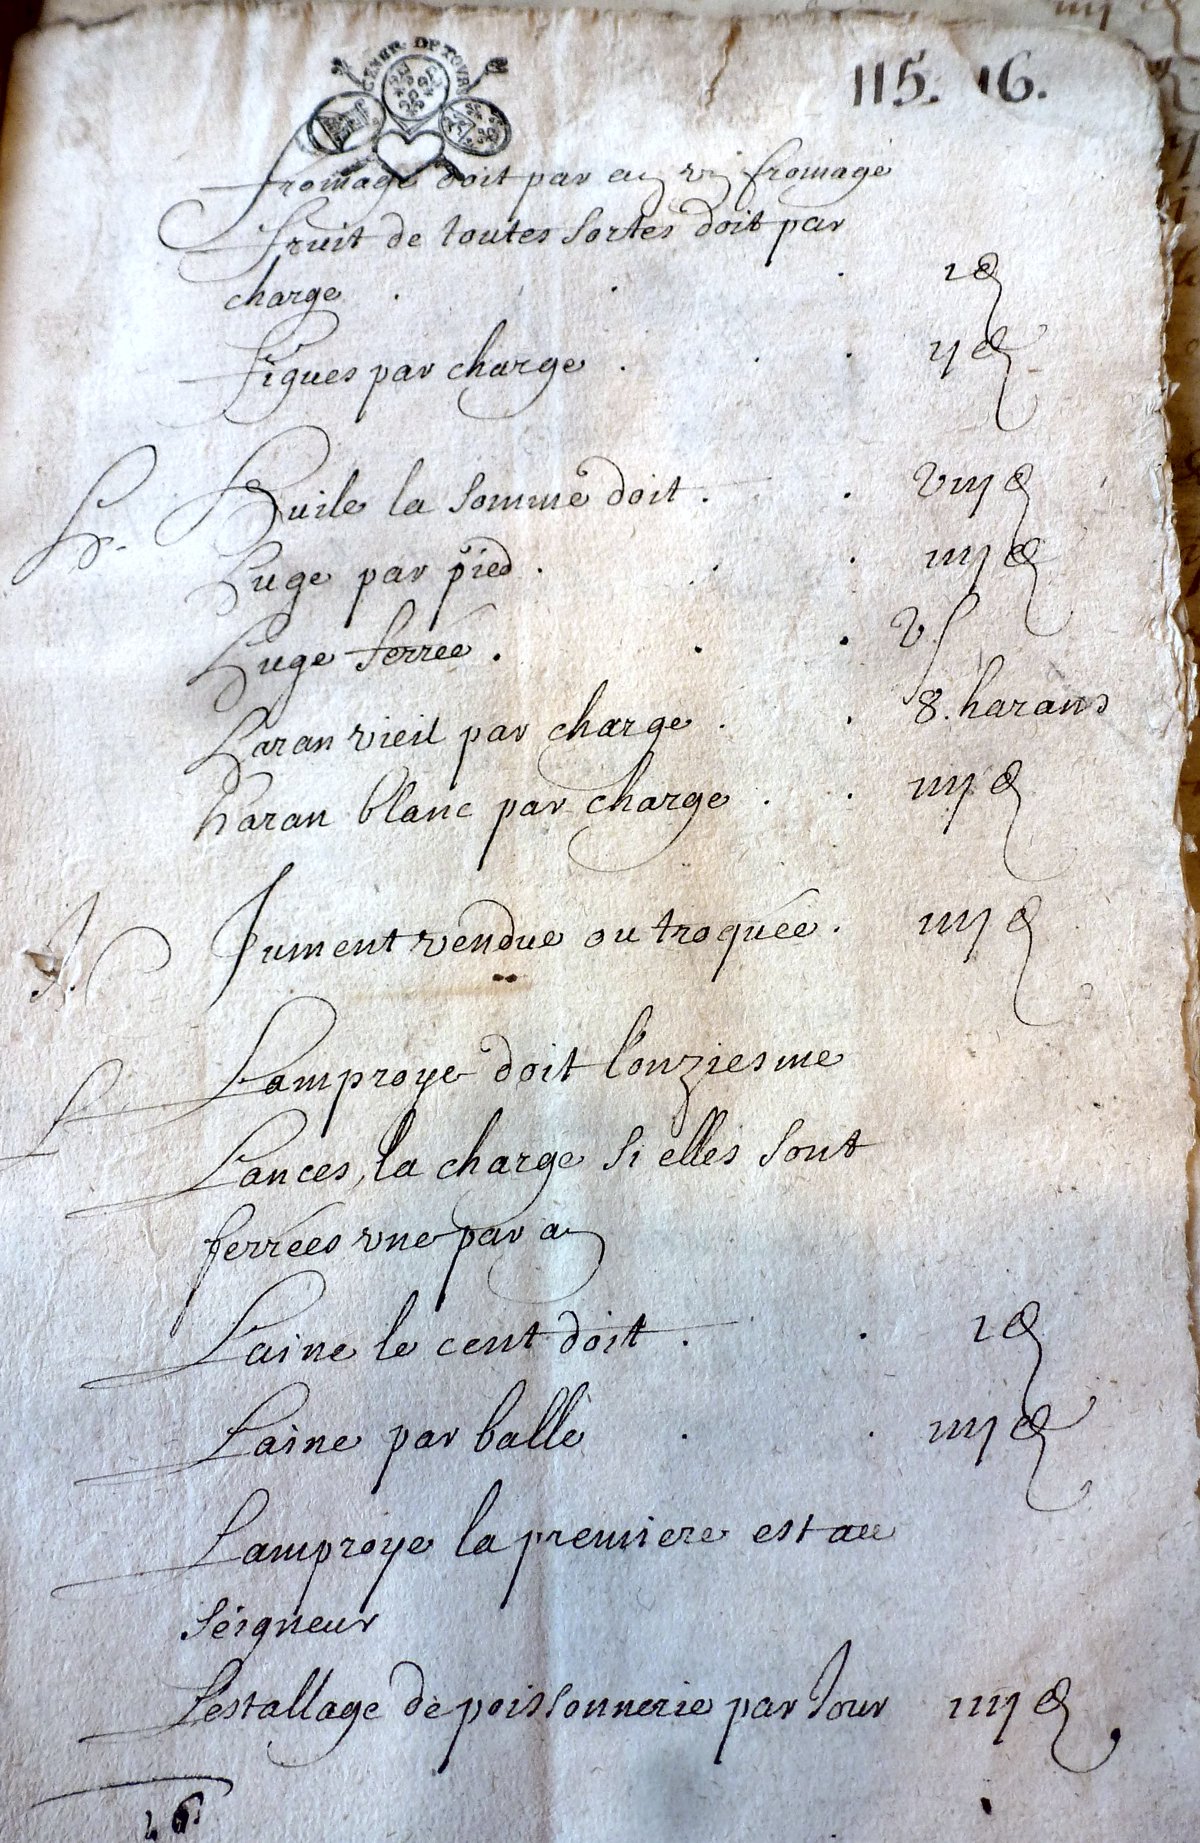 GENER. DE TOVR
115. 16.
fromage doit par an vj fromage
fruit de toutes sortes doit par
charge . . . 1 d
figues par charge . . . ij d
H. Huile la somme doit . . viij d
Huge par pied . . . iiij d
Huge ferrée . . . v s
Haran vieil par charge . . 8. harans
haran blanc par charge . . iiij d
J. Jument vendue ou troquée . iiij d
L Lamproye doit l'onziesme
Lances, la charge si elles sont
ferrées vne par an
Laine le cent doit . . 1 d
Laine par balle . . iiij d
Lamproye la premiere est au
seigneur
Lestallage de poissonnerie par Jour iiij d
16